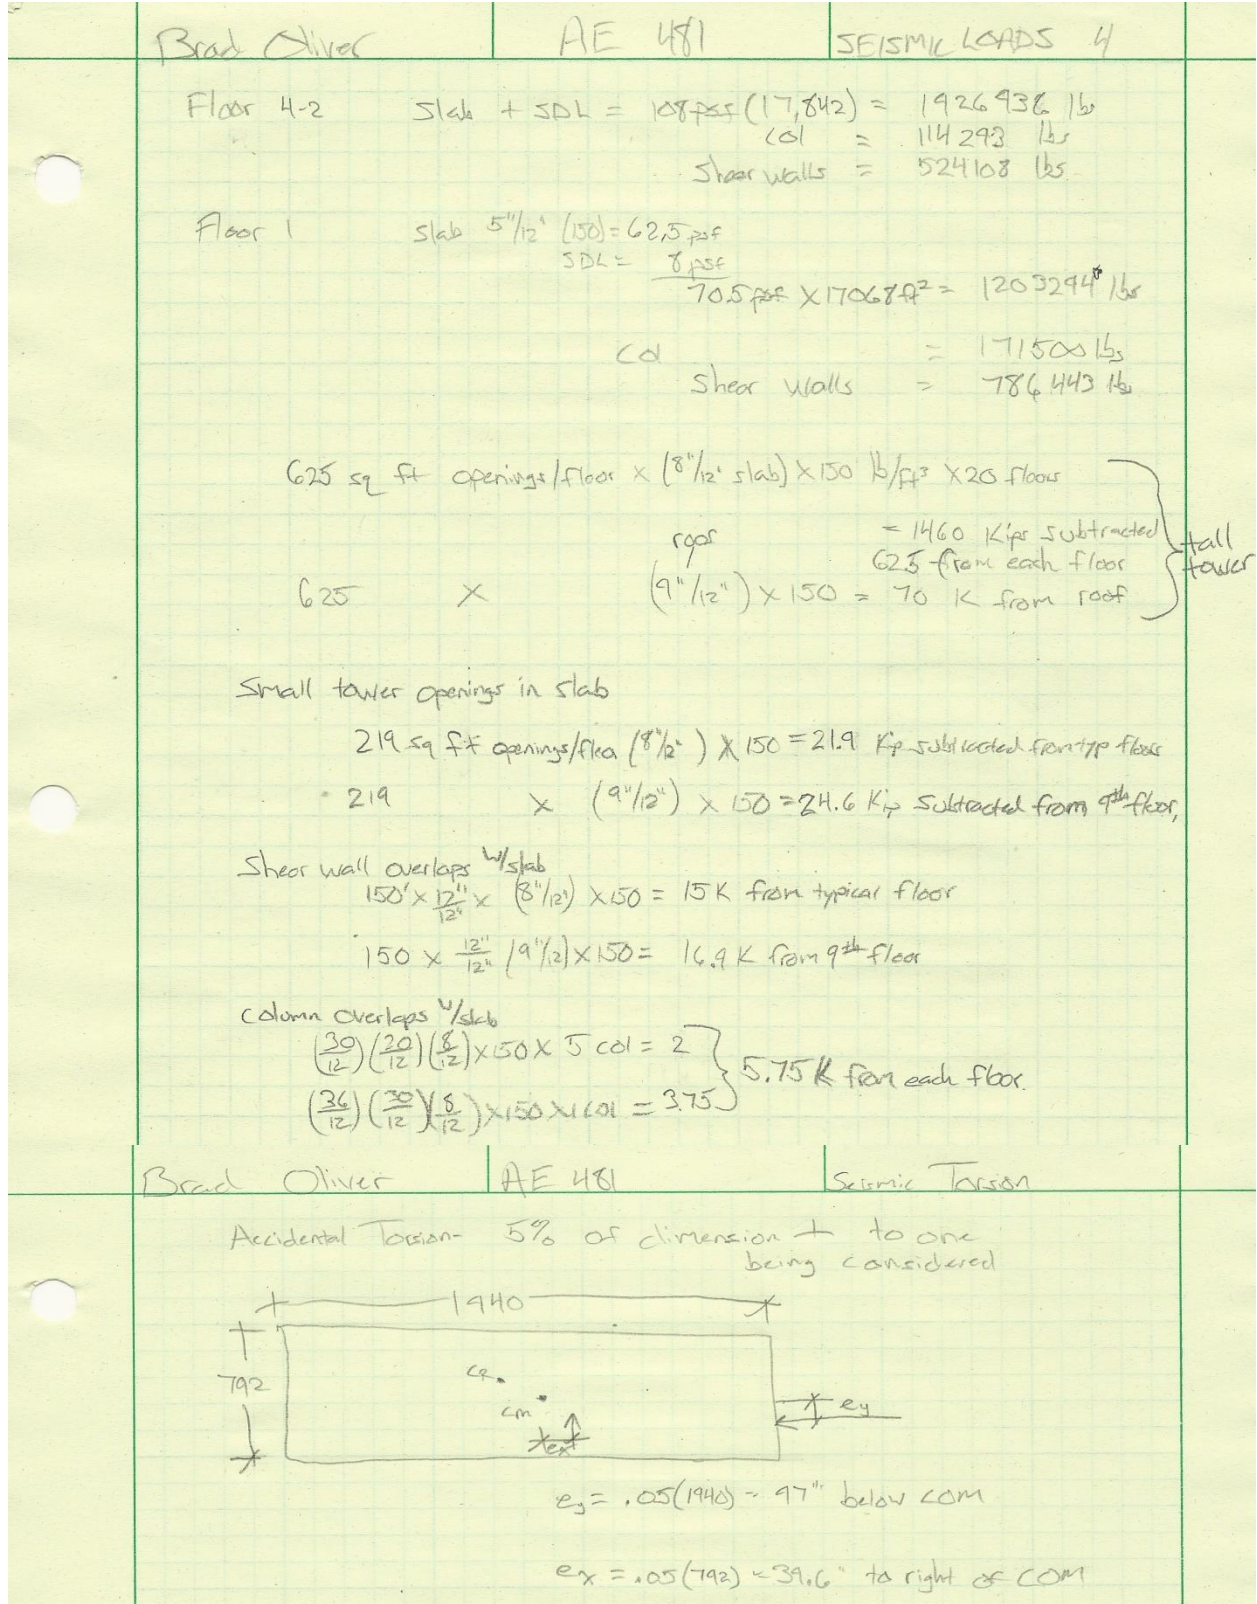 Brad Oliver AE 481 SEISMIC LOADS 4
Floor 4-2 Slab + SDL = 108 psf (17,842) = 1926936 lbs
col = 114293 lbs
Shear walls = 524108 lbs
Floor 1 slab 5"/12" (150) = 62.5 psf
SDL = 8 psf
70.5 psf × 17068 ft² = 1203294 lbs
Col = 171500 lbs
Shear Walls = 786443 lbs
625 sq ft openings/floor × (8"/12" slab) × 150 lb/ft³ × 20 floors
= 1460 Kips subtracted
tall
roof 62.5 from each floor
tower
625 × (9"/12") × 150 = 70 K from roof
Small tower openings in slab
219 sq ft openings/floor (8"/12") × 150 = 21.9 Kip subtracted from typ floors
219 × (9"/12") × 150 = 24.6 Kip Subtracted from 9th floor,
Shear wall overlaps w/slab
150' × 12"/12" × (8"/12) × 150 = 15 K from typical floor
150 × 12"/12" (9"/12) × 150 = 16.9 K from 9th floor
Column overlaps w/slab
(30/12)(20/12)(8/12) × 150 × 5 col = 2
5.75 K from each floor.
(36/12)(30/12)(8/12) × 150 × 1 col = 3.75
Brad Oliver AE 481 Seismic Torsion
Accidental Torsion- 5% of dimension ⊥ to one
being considered
1940
792
CR
cm
ey
ex
ey = .05(1940) = 97" below COM
ex = .05(792) = 39.6" to right of COM